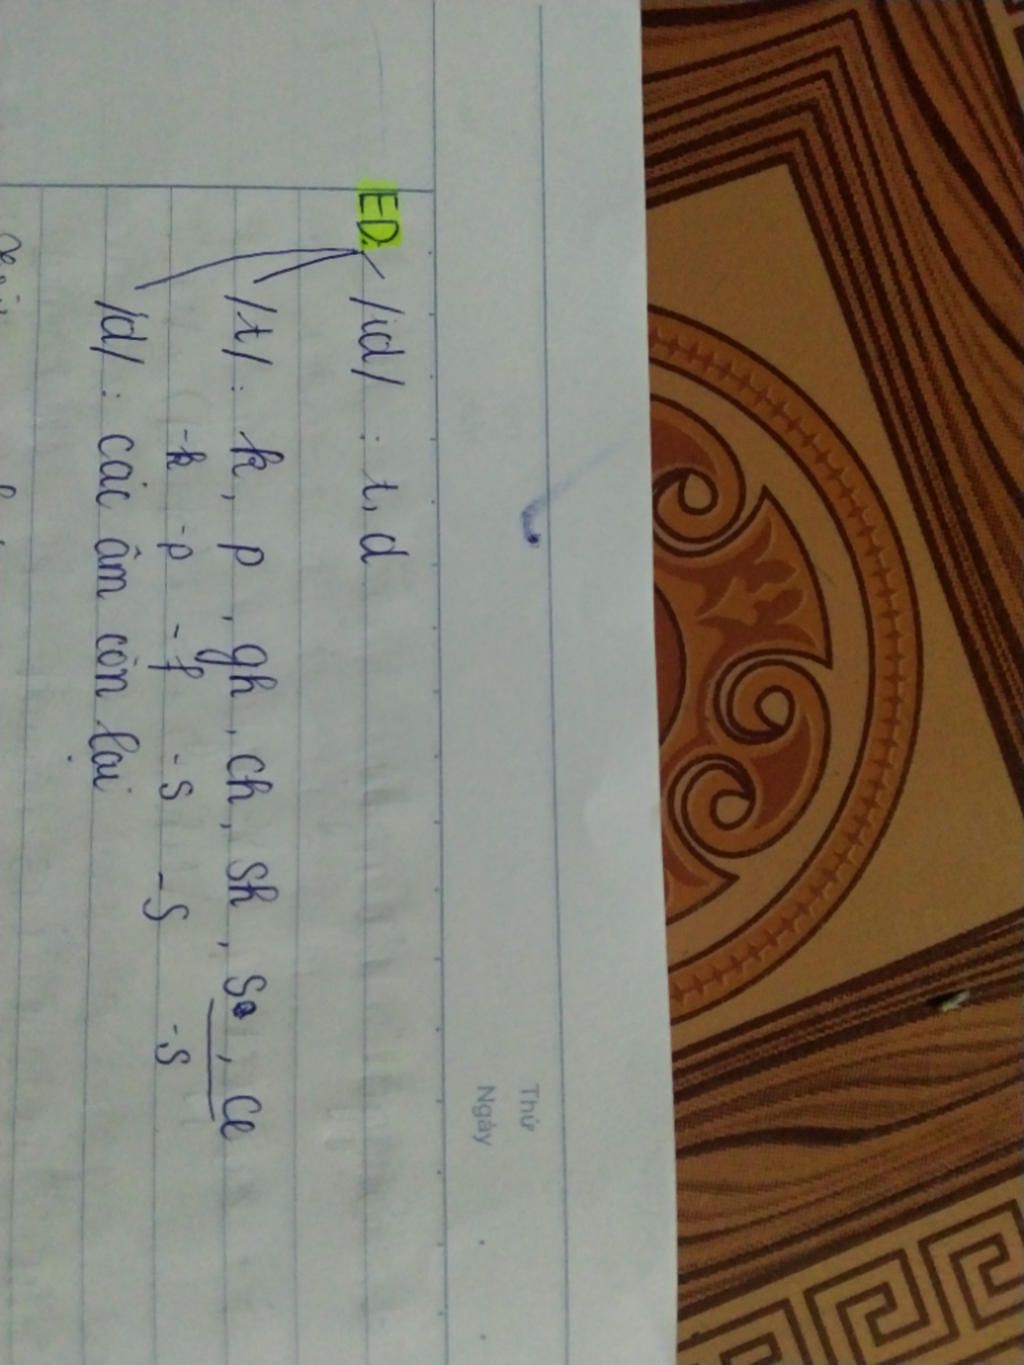 Thứ
Ngày
ED. /id/ : t, d
/t/ : k, p, gh, ch, sh, se, ce
-k -p -f -s -s -s
/d/ : các âm còn lại